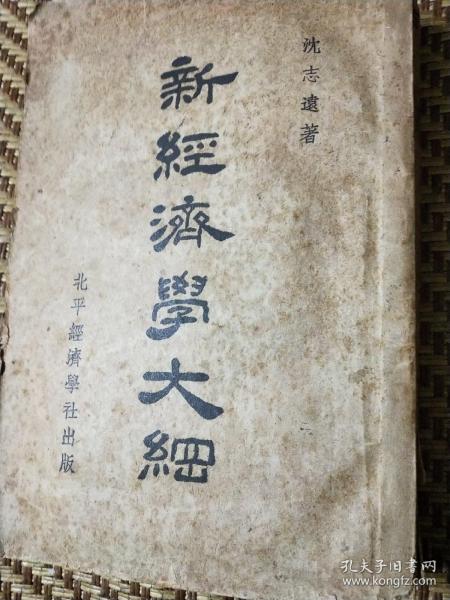 沈志遠著
新經濟學大綱
北平經濟學社出版
孔夫子旧书网
www.kongfz.com